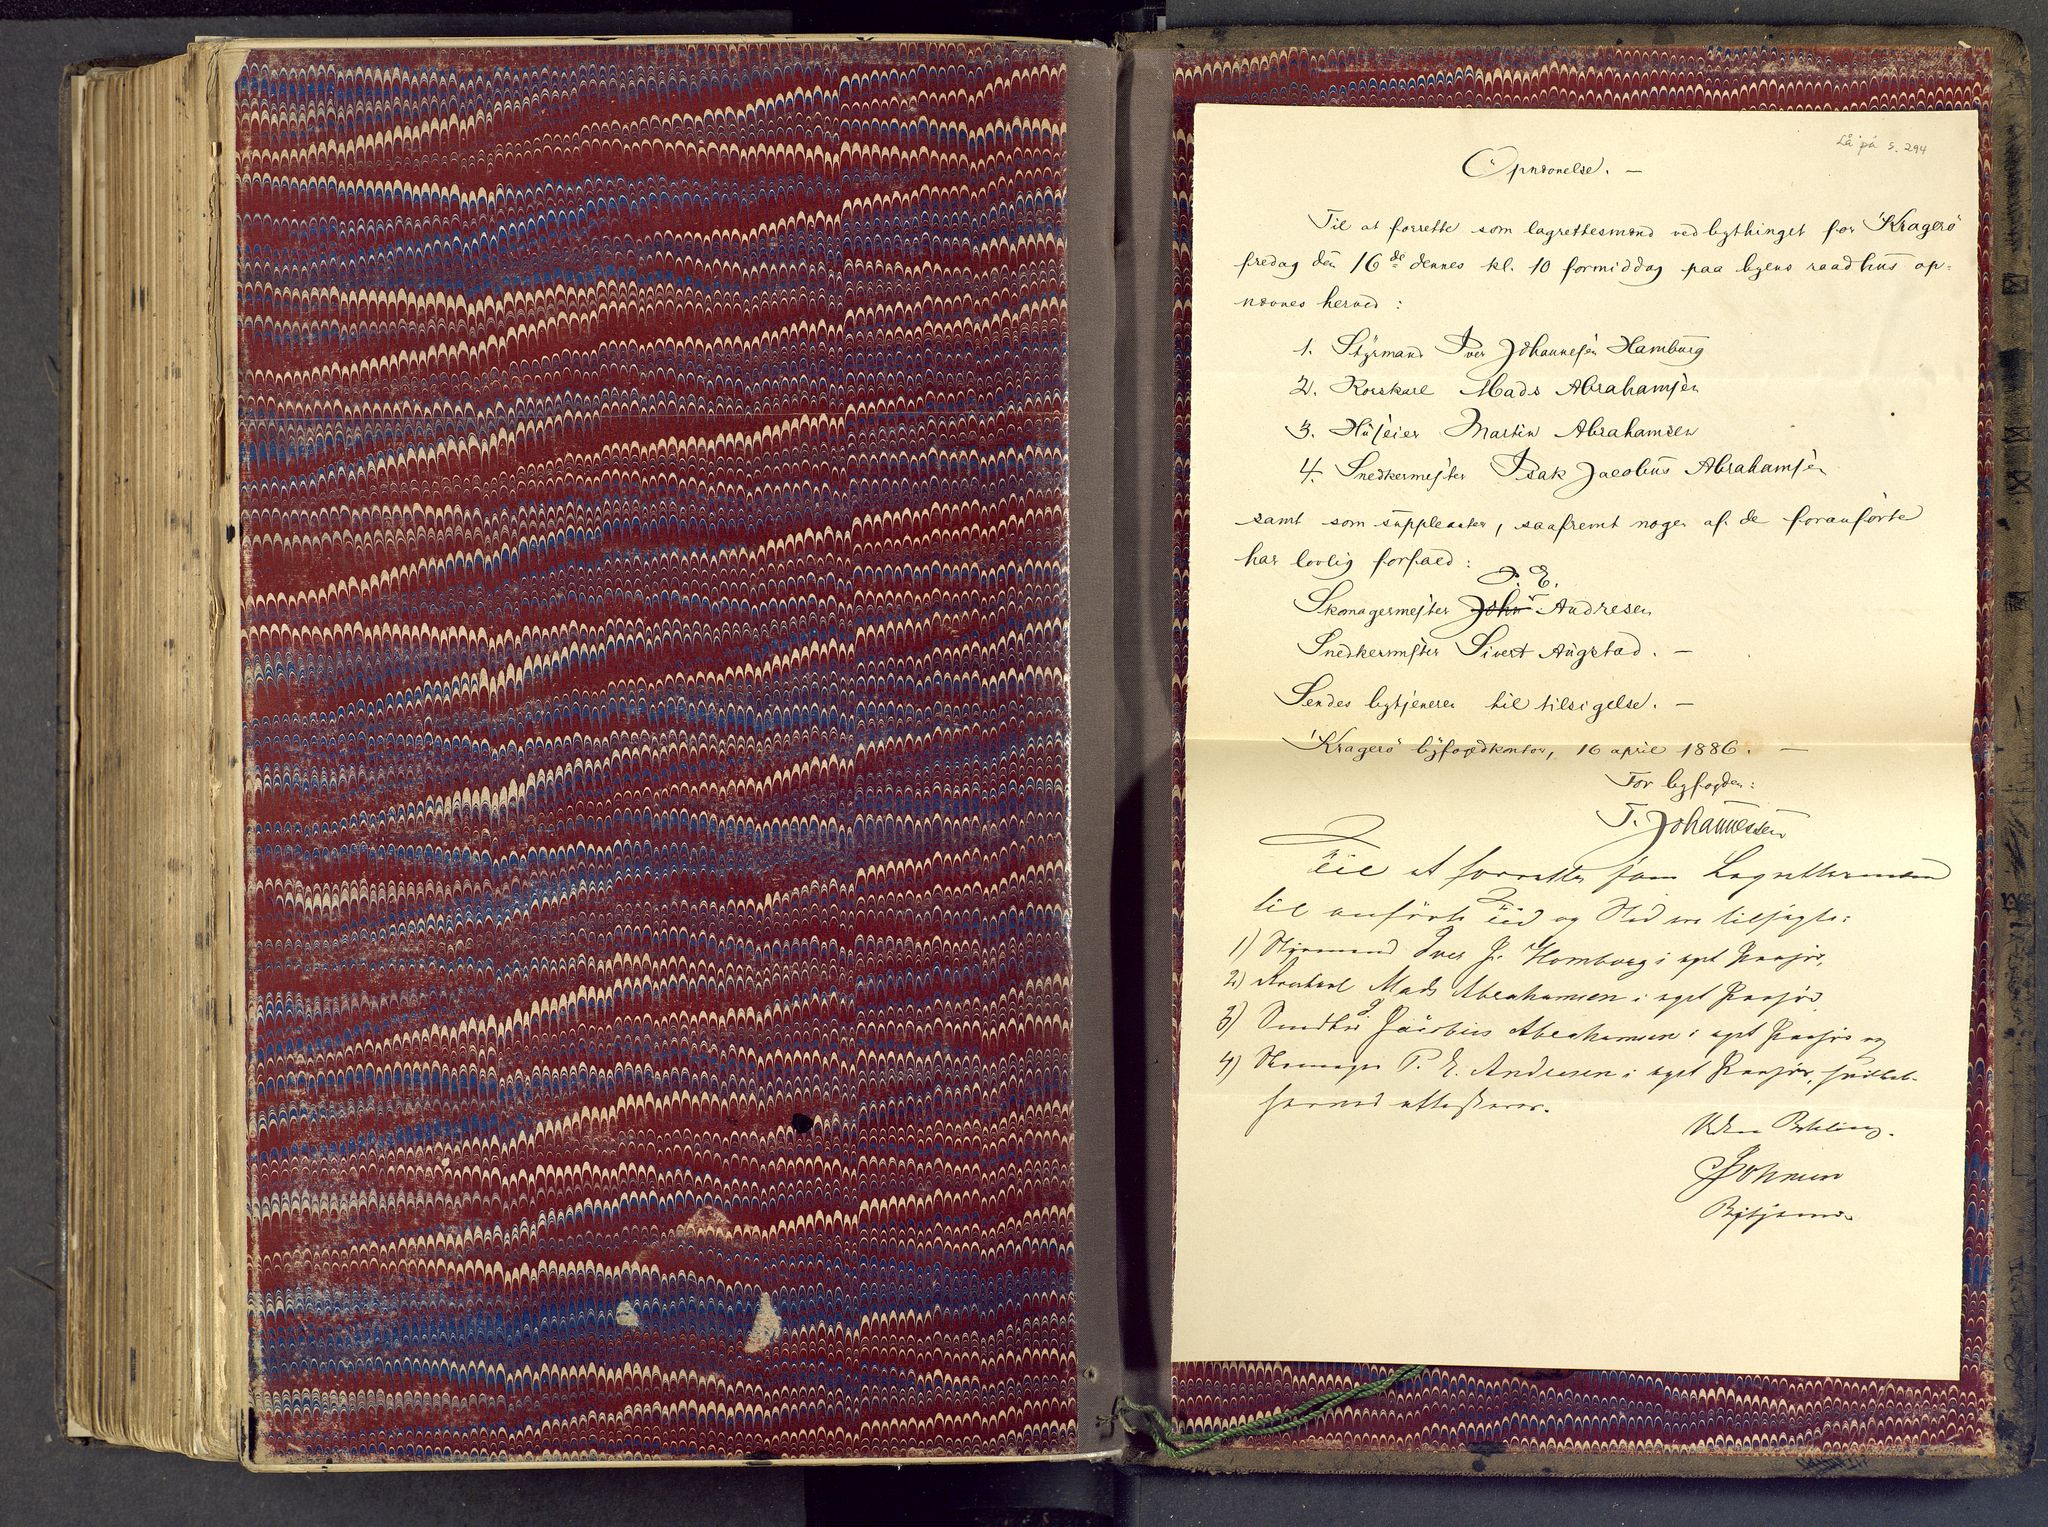 Lå på s. 294
Opnævnelse. —
Til at forrette som lagrettesmænd ved bythinget for Kragerö
fredag den 16de dennes kl. 10 formiddag paa byens raadhus op-
nævnes herved:
1. Styrmand Iver Johannesen Hamburg
2. Korskarl Mads Abrahamsen
3. Huseier Martin Abrahamsen
4. Snedkermester Isak Jacobus Abrahamsen
samt som suppleanter, saafremt nogen af de foranførte
har lovlig forfald:
P. E.
Skomagermester John Andresen
Snedkermester Sivert Augestad. —
Sendes bytjeneren til tilsigelse. —
Kragerö byfogedkontor, 16 april 1886. —
For byfogden:
T. Johannessen
Til at forrette som Lagrettesmænd
til anførte Tid og Sted ere tilsagte:
1) Styrmand Iver J. Homborg i eget Paasyn,
2) Korskarl Mads Abrahamsen i eget Paasyn,
3) Snedker I. Jacobus Abrahamsen i eget Paasyn og
4) Skomager P. E. Andresen i eget Paasyn, hvilket
herved attesteres.
Uden Betaling.
Johnsen
Bytjener